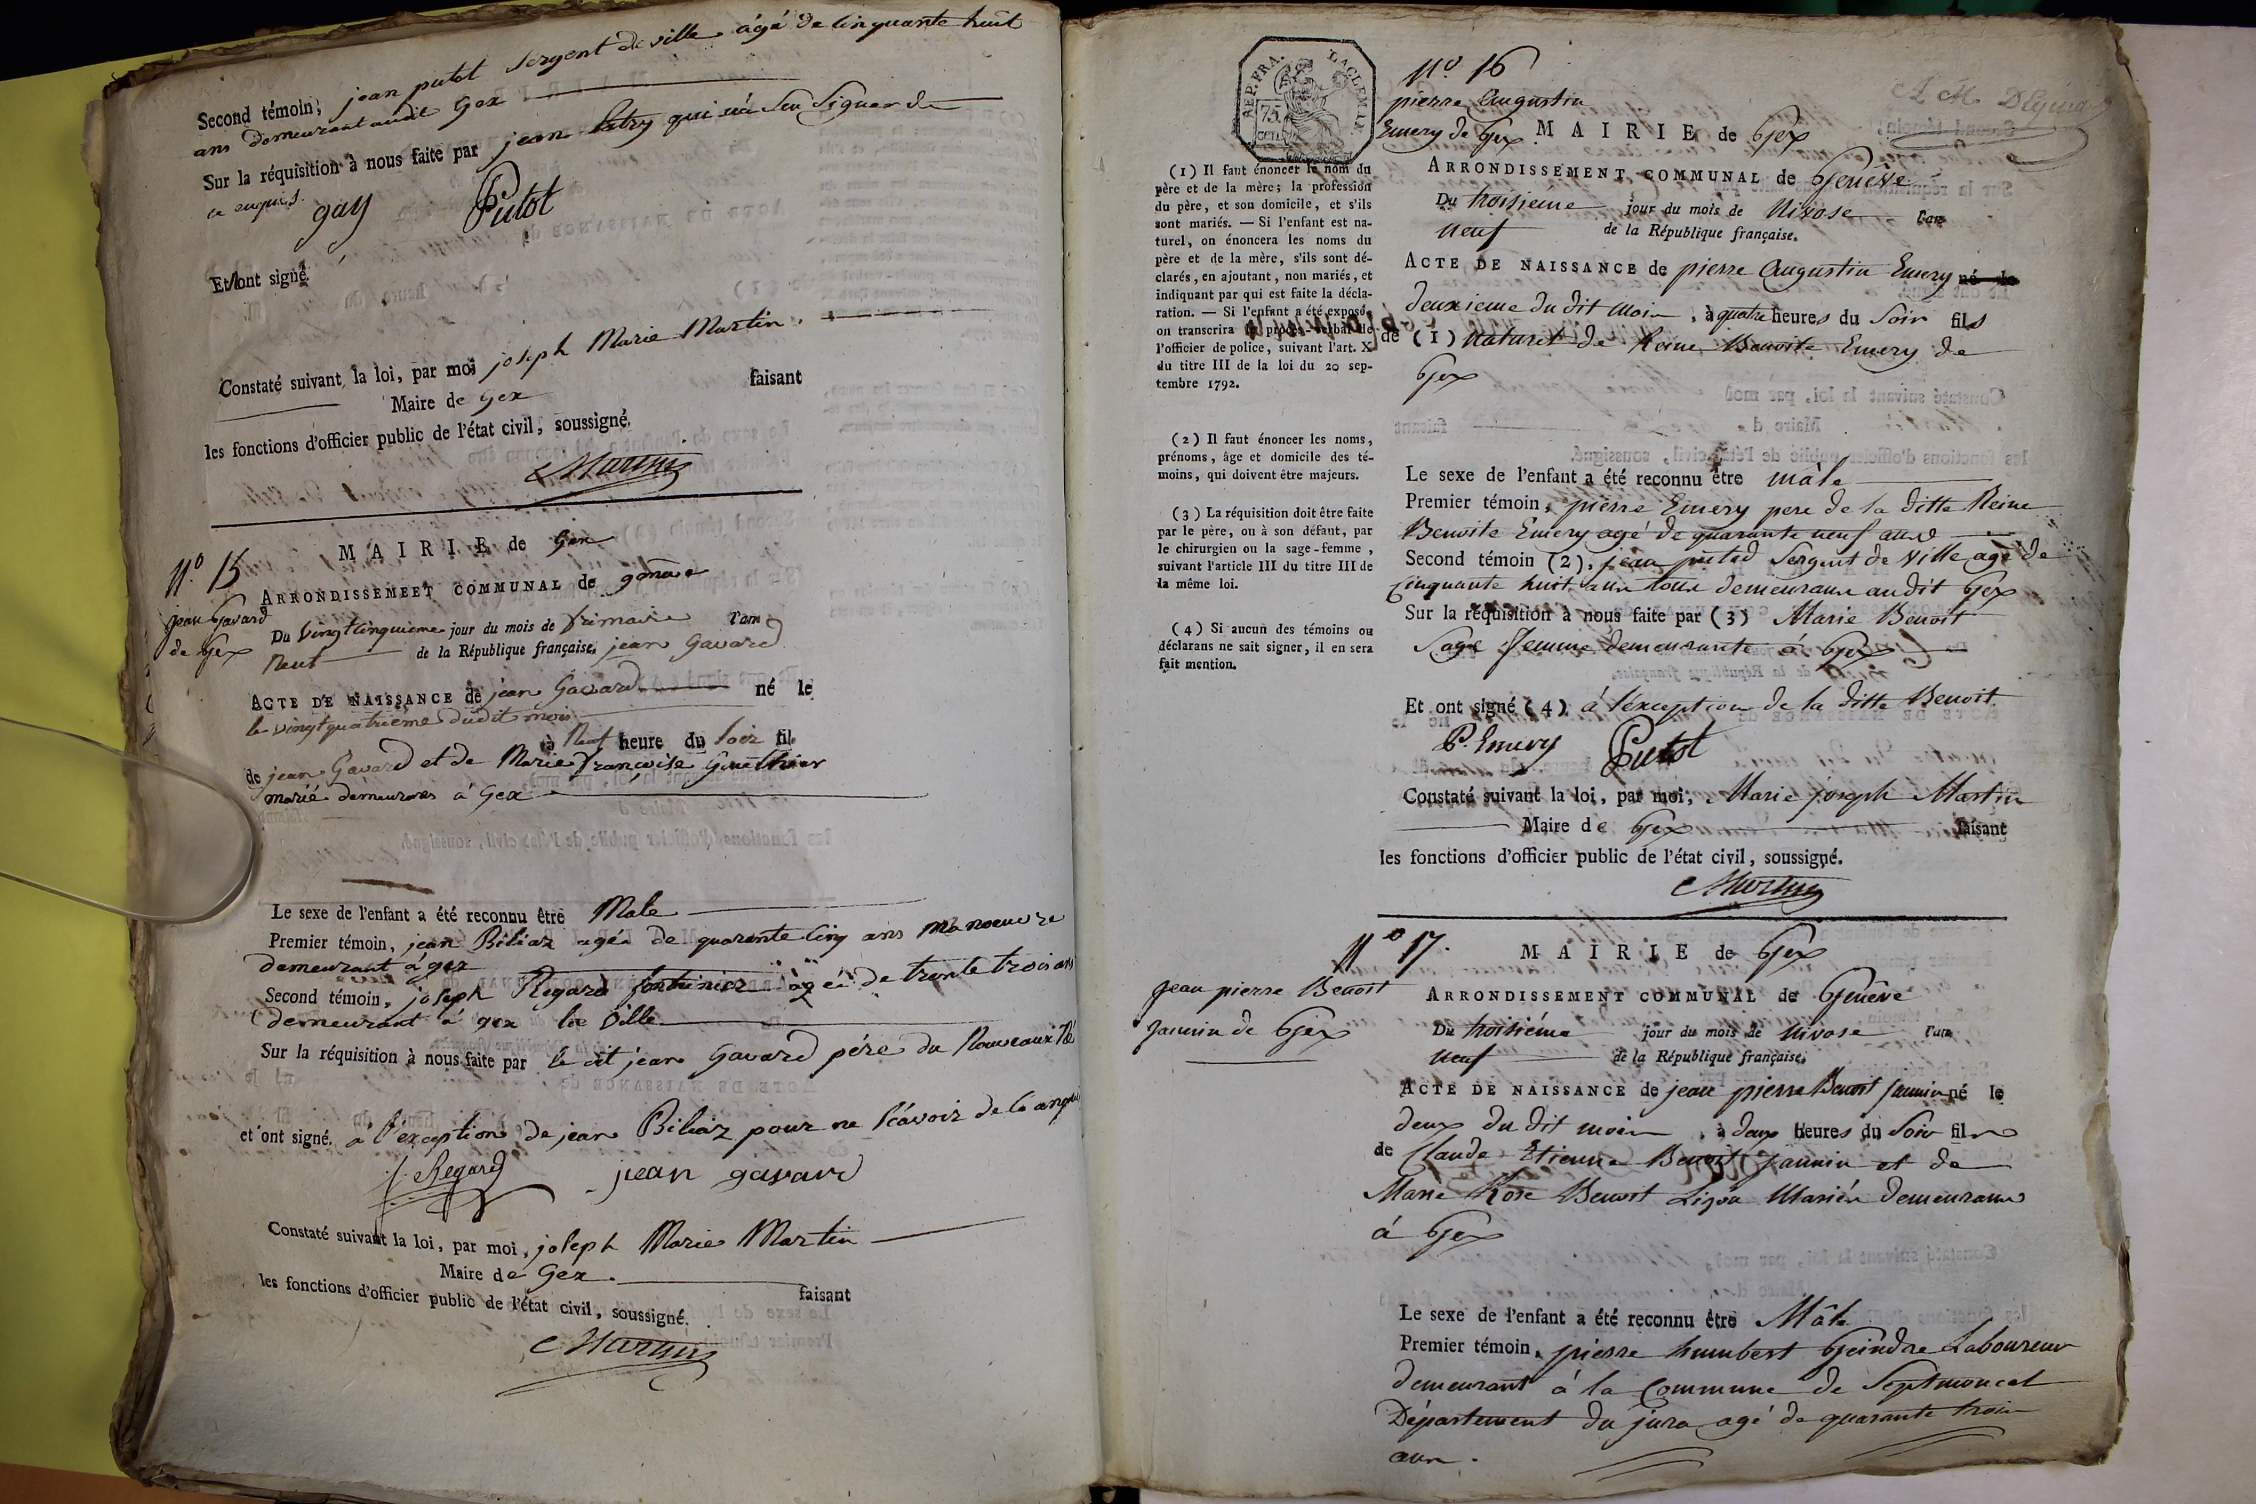 Second témoin, jean putot Sergent de ville agé de cinquante huit
ans demeurant audit Gex
Sur la réquisition à nous faite par jean qui n'a Seu Signer de
ce enquis.
gay Putot
Et ont signé.
Constaté suivant la loi, par moi joseph Marie Martin.
Maire de Gex faisant
les fonctions d'officier public de l'état civil, soussigné.
Martin
N.º 15
jean Gavard
de Gex
MAIRIE de Gex
ARRONDISSEMEET COMMUNAL de
Du vingt cinquieme jour du mois de frimaire l'an
Neuf de la République française. jean Gavard
ACTE DE NAISSANCE de jean Gavard né le
le vingt quatrieme dudit mois
à Neuf heure du soir fils
de jean Gavard et de Marie françoise Gouthier
marié demeurans à Gex
Le sexe de l'enfant a été reconnu être Male
Premier témoin, jean Biliaz agée de quarente cinq ans manoeuvre
demeurant à gex
Second témoin, joseph Regard fontenier agée de trente trois ans
demeurant à gex la ville
Sur la réquisition à nous faite par le dit jean Gavard pére du Nouveaux Né
et ont signé. à l'exception de jean Biliaz pour ne sçavoir de ce
j. Regard jean gavard
Constaté suivant la loi, par moi, joseph Marie Martin
Maire de Gex.
faisant
les fonctions d'officier public de l'état civil, soussigné.
Martin
REP. FRA.
75.
CEN.
N.º 16
pierre augustin
Emery de Gex
MAIRIE de Gex
ARRONDISSEMENT COMMUNAL de Genève
Du troisieme jour du mois de Nivose l'an
neuf de la République française.
ACTE DE NAISSANCE de pierre augustin Emery né le
deuxieme du dit mois, à quatre heures du Soir fils
de (1) naturel de Reine Benoite Emery de
Gex
(1) Il faut énoncer le nom du
père et de la mère; la profession
du père, et son domicile, et s'ils
sont mariés. — Si l'enfant est na-
turel, on énoncera les noms du
père et de la mère, s'ils sont dé-
clarés, en ajoutant, non mariés, et
indiquant par qui est faite la décla-
ration. — Si l'enfant a été exposé,
on transcrira le procès-verbal de
l'officier de police, suivant l'art. X
du titre III de la loi du 20 sep-
tembre 1792.
(2) Il faut énoncer les noms,
prénoms, âge et domicile des té-
moins, qui doivent être majeurs.
(3) La réquisition doit être faite
par le père, ou à son défaut, par
le chirurgien ou la sage-femme,
suivant l'article III du titre III de
la même loi.
(4) Si aucun des témoins ou
déclarans ne sait signer, il en sera
fait mention.
Le sexe de l'enfant a été reconnu être mâle
Premier témoin, pierre Emery pere de la ditte Reine
Benoite Emery agé de quarante neuf ans
Second témoin (2), jean putod Sergent de Ville agé de
Cinquante huit ans tous demeurans audit Gex
Sur la réquisition à nous faite par (3) Marie Benoit
Sage femme demeurante à Gex
Et ont signé (4) à l'exception de la ditte Benoit.
P. Emery Putot
Constaté suivant la loi, par moi, Marie joseph Martin
Maire de Gex faisant
les fonctions d'officier public de l'état civil, soussigné.
Martin
N.º 17.
jean pierre Benoit
jaunin de Gex
MAIRIE de Gex
ARRONDISSEMENT COMMUNAL de Genève
Du troisiéme jour du mois de nivose l'an
neuf de la République française.
ACTE DE NAISSANCE de jean pierre Benoit jaunin né le
deux du dit mois, à deux heures du Soir fils
de Claude Etienne Benoit jaunin et de
Marie Rose Benoit mariés demeurans
à Gex
Le sexe de l'enfant a été reconnu être Mâle
Premier témoin, pierre humbert Geindre Laboureur
demeurant à la Commune de Septmoncel
Département du jura agé de quarante trois
ans.